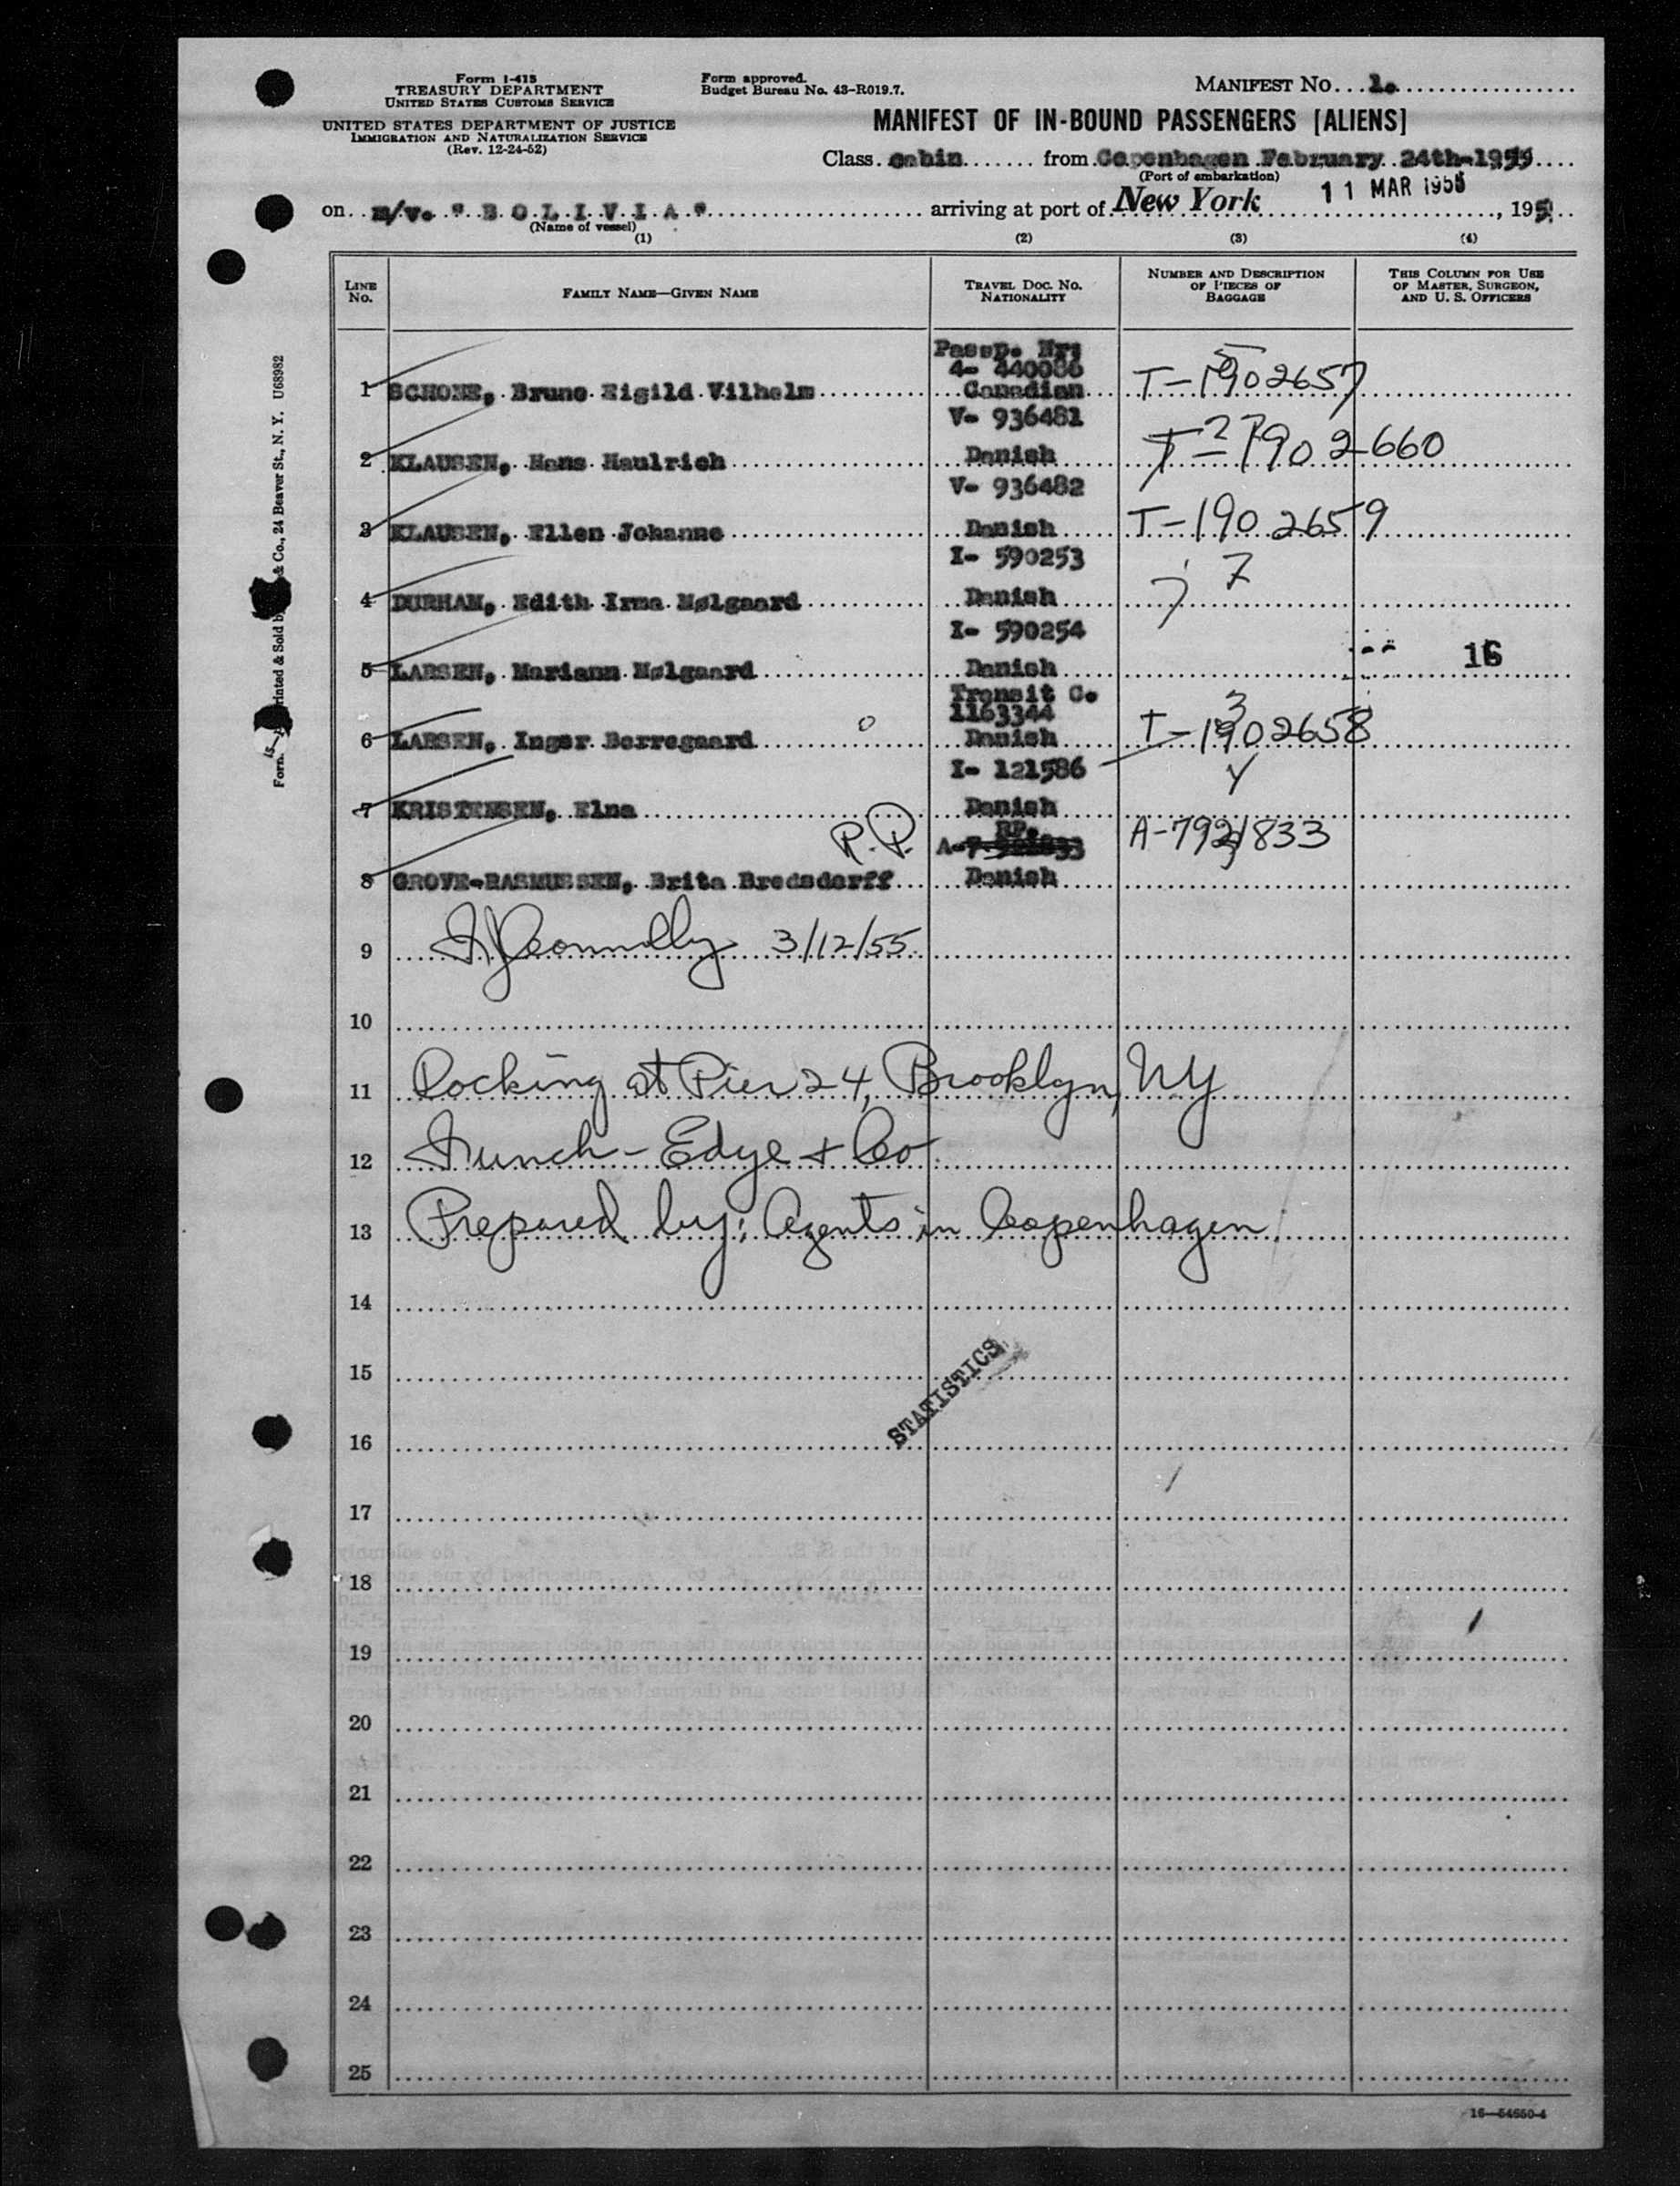 Form I-415
TREASURY DEPARTMENT
UNITED STATES CUSTOMS SERVICE
UNITED STATES DEPARTMENT OF JUSTICE
IMMIGRATION AND NATURALIZATION SERVICE
(Rev. 12-24-52)
Form approved.
Budget Bureau No. 43-R019.7.
MANIFEST No. 1.
MANIFEST OF IN-BOUND PASSENGERS [ALIENS]
Class cabin from Copenhagen February 24th-1955
(Port of embarkation)
on m/v. "BOLIVIA" arriving at port of New York 11 MAR 1955, 195
(Name of vessel)
(1) (2) (3) (4)
LINE No. FAMILY NAME—GIVEN NAME TRAVEL DOC. NO. NATIONALITY NUMBER AND DESCRIPTION OF PIECES OF BAGGAGE THIS COLUMN FOR USE OF MASTER, SURGEON, AND U. S. OFFICERS
Passp. Nr:
4- 440086
1 SCHONE, Bruno Eigild Vilhelm Canadian T-1902657
V- 936481
2 KLAUSEN, Hans Haulrich Danish T-1902660
V- 936482
3 KLAUSEN, Ellen Johanne Danish T-1902659
I- 590253
4 DURHAM, Edith Irma Mølgaard Danish 7
I- 590254
5 LARSEN, Mariann Mølgaard Danish 16
Transit C.
1163344
6 LARSEN, Inger Borregaard Danish T-1902658
I- 121586
7 KRISTENSEN, Elna Danish
R.P. RP. A-7 A-7921833
8 GROVE-RASMUSSEN, Brita Bredsdorff Danish
9 Connolly 3/12/55
10
11 Docking at Pier 24, Brooklyn, NY
12 Funch-Edye & Co
13 Prepared by: Agents in Copenhagen
14
STATISTICS
15
16
17
18
19
20
21
22
23
24
25
16—54550-4
& Co., 24 Beaver St., N. Y. U68982